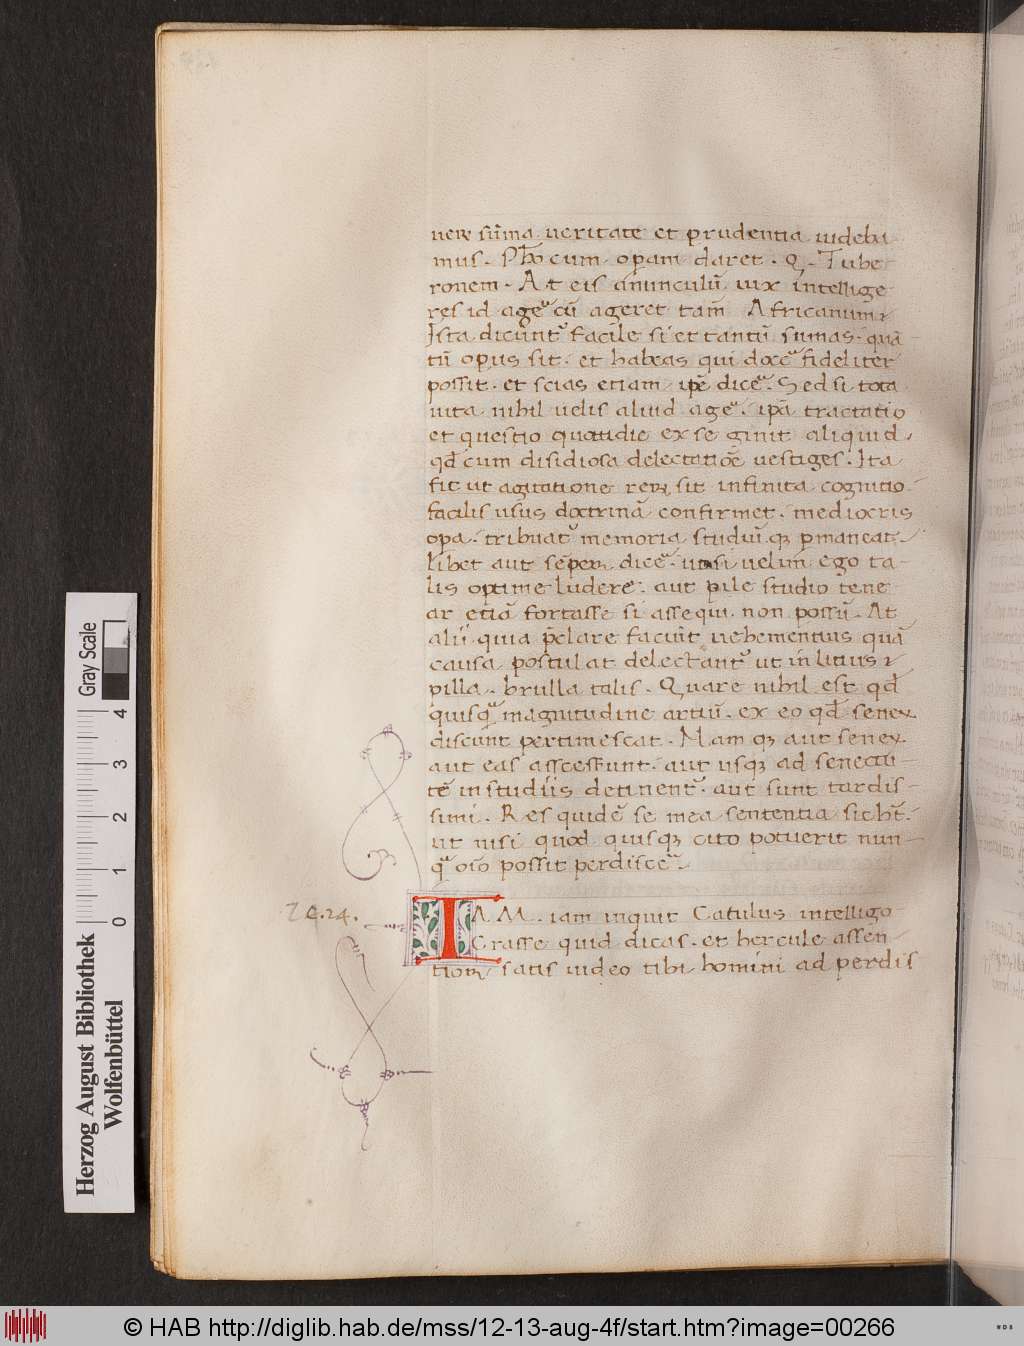 uerꝝ sūma ueritate et prudentia uideba
mus. Pħo cum operam daret. Q. Tube
ronem. At eis auunculū uix intellige
res id agē cū ageret tam̄ Africanum.
Ista dicunt᷑ facile si et tantū sumas. quā
tū opus sit. et habeas qui docē fideliter
possit. et scias etiam ip̄e dicē. Sed si tota
uita nihil uelis aliud agē. ip̄a tractatio
et questio quotidie ex se ginit aliquid.
qđ cum disidiosa delectatiōe uestiges. Ita
fit ut agitatione rerꝝ sit infinita cognitio
facilis usus doctrinā confirmet. mediocris
opa. tribuat᷑ memoria studiūqꝫ pmaneat.
libet aut sēperꝝ dicē. ut si uelim ego ta-
lis optime ludere. aut pile studio tene
ar etiā fortasse si assequi non possū. At
alii quia p̄clare faciūt uehementius quā
causa postulat delectant᷑ ut in litius
pilla. brulla talis. Quare nihil est qđ
quisq̄ magnitudine artiū. ex eo qđ senex
discunt pertimescat. Nam qꝫ aut senex
aut eas assessunt. aut usqꝫ ad senectu-
tē in studiis detinent᷑. aut sunt tardis-
simi. Res quidē se mea sententia sic ħt.
ut nisi quod quisqꝫ cito potuerit nun-
q̄ oīo possit perdiscē.
IAM. iam inquit Catulus intelligo
24.
Crasse quid dicas. et hercule assen
tiorꝝ satis uideo tibi homini ad perdis
Gray Scale
4
3
2
1
0
Herzog August Bibliothek
Wolfenbüttel
© HAB http://diglib.hab.de/mss/12-13-aug-4f/start.htm?image=00266